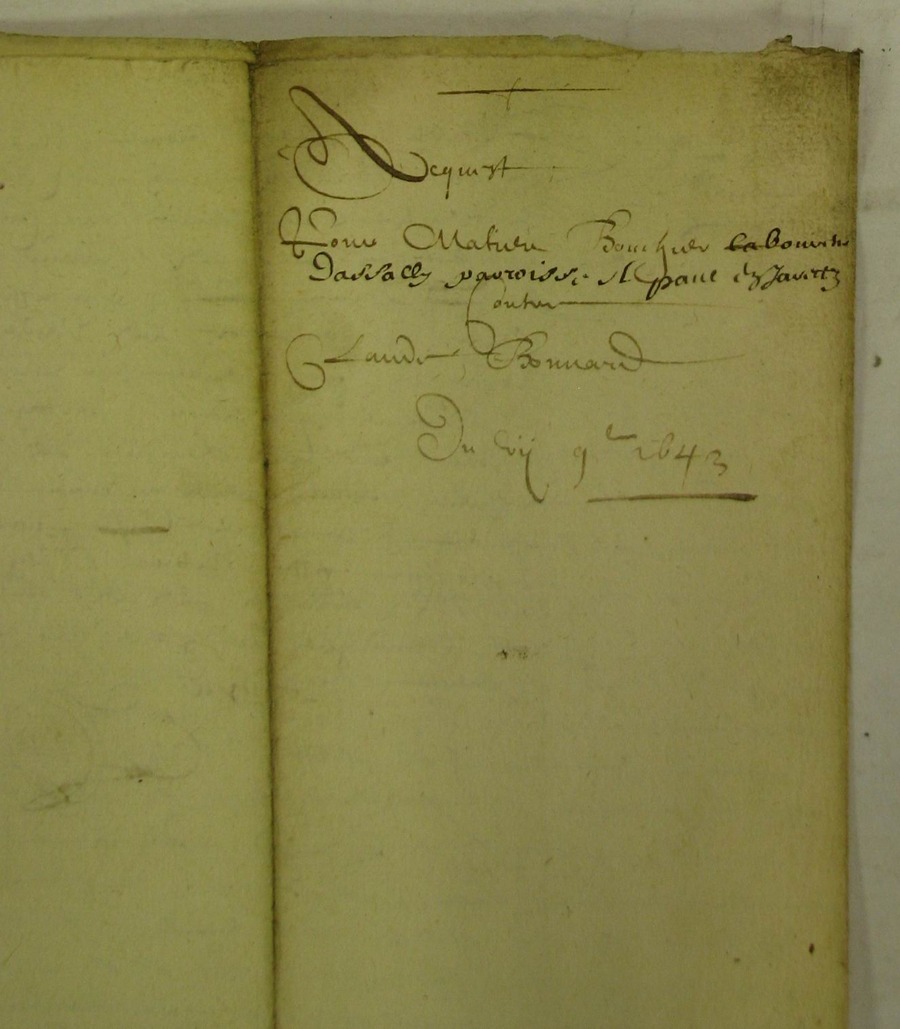 Acquist
Pour Mathieu Bouchier laboureur
Dassally parroisse St paul Jarretz
Contre
Claude Bonnard
Du xvij 9bre 1643